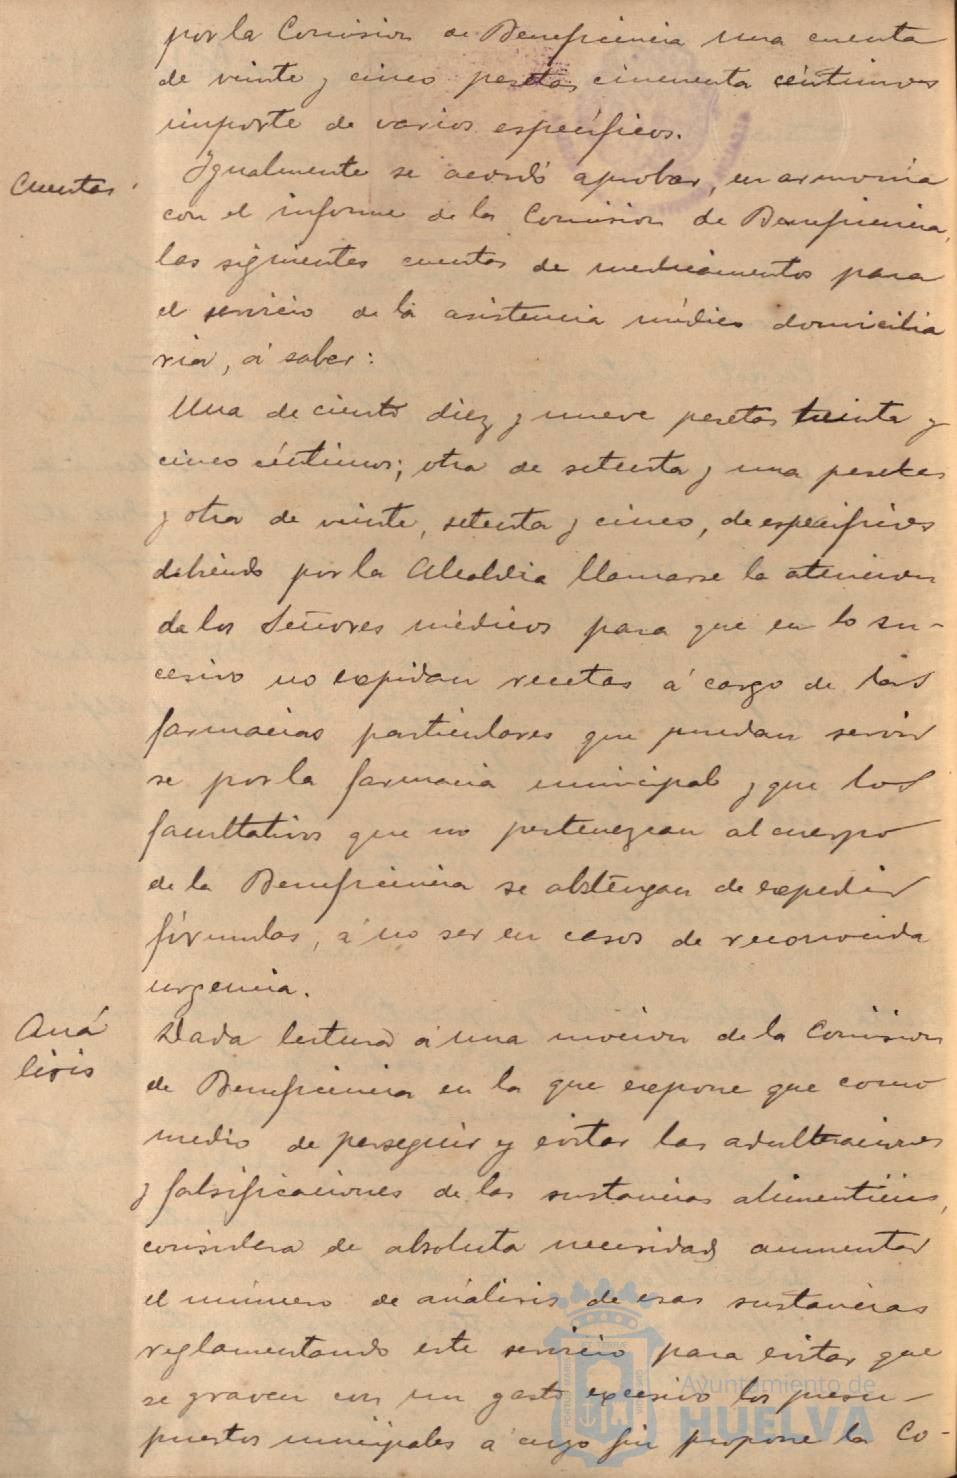 por la Comision de Beneficencia una cuenta
de veinte y cinco pesetas cincuenta céntimos
importe de varios específicos.
Cuentas
Igualmente se acordó aprobar, en armonia
con el informe de la Comision de Beneficencia,
las siguientes cuentas de medicamentos para
el servicio de la asistencia médica domicilia
ria, á saber:
Una de ciento diez y nueve pesetas treinta y
cinco céntimos; otra de setenta y una pesetas
y otra de veinte, setenta y cinco, de especificos
debiendo por la Alcaldia llamarse la atencion
de los Señores médicos para que en lo su-
cesivo no expidan recetas á cargo de las
farmacias particulares que puedan servir
se por la farmacia municipal y que los
facultativos que no pertenezcan al cuerpo
de la Beneficencia se abstengan de expedir
fórmulas, á no ser en casos de reconocida
urgencia.
Aná
lisis
Dada lectura á una mocion de la Comision
de Beneficencia en la que expone que como
medio de perseguir y evitar las adulteraciones
y falsificaciones de las sustancias alimenticias,
considera de absoluta necesidad aumentar
el número de análisis de esas sustancias
reglamentando este servicio para evitar que
se graven con un gasto excesivo los presu-
puestos municipales a cuyo fin propone la Co-
Ayuntamiento de
HUELVA